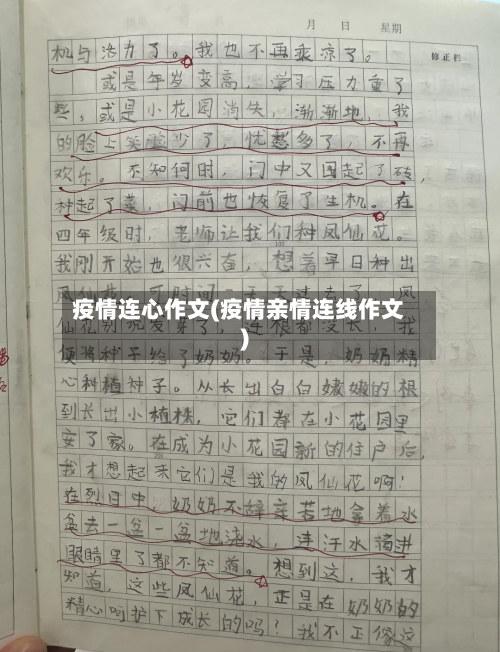 月 日 星期
修正栏
机与活力了。我也不再乘凉了。
或是年岁变高，学习压力重了
些，或是小花园消失，渐渐地，我
的脸上笑脸少了，忧愁多了，不再
欢乐。不知何时，门中又围起了砖，
种起了菜，门前也恢复了生机。在
四年级时，老师让我们种凤仙花。
我刚开始也很兴奋，想着早日种出
100
疫情连心作文(疫情亲情连线作文
)
便将种子给了奶奶。于是，奶奶精
心种植种子。从长出白白嫩嫩的根
到长出小植株，它们都在小花园里
安了家。在成为小花园新的住户后，
200
我才想起来它们是我的凤仙花啊！
在烈日中，奶奶不辞辛苦地拿着水
盆去一盆一盆地浇水，连汗水淌进
眼睛里了都不知道。想到这，我才
知道，这些凤仙花，正是在奶奶的
精心呵护下成长的吗？我不正像这